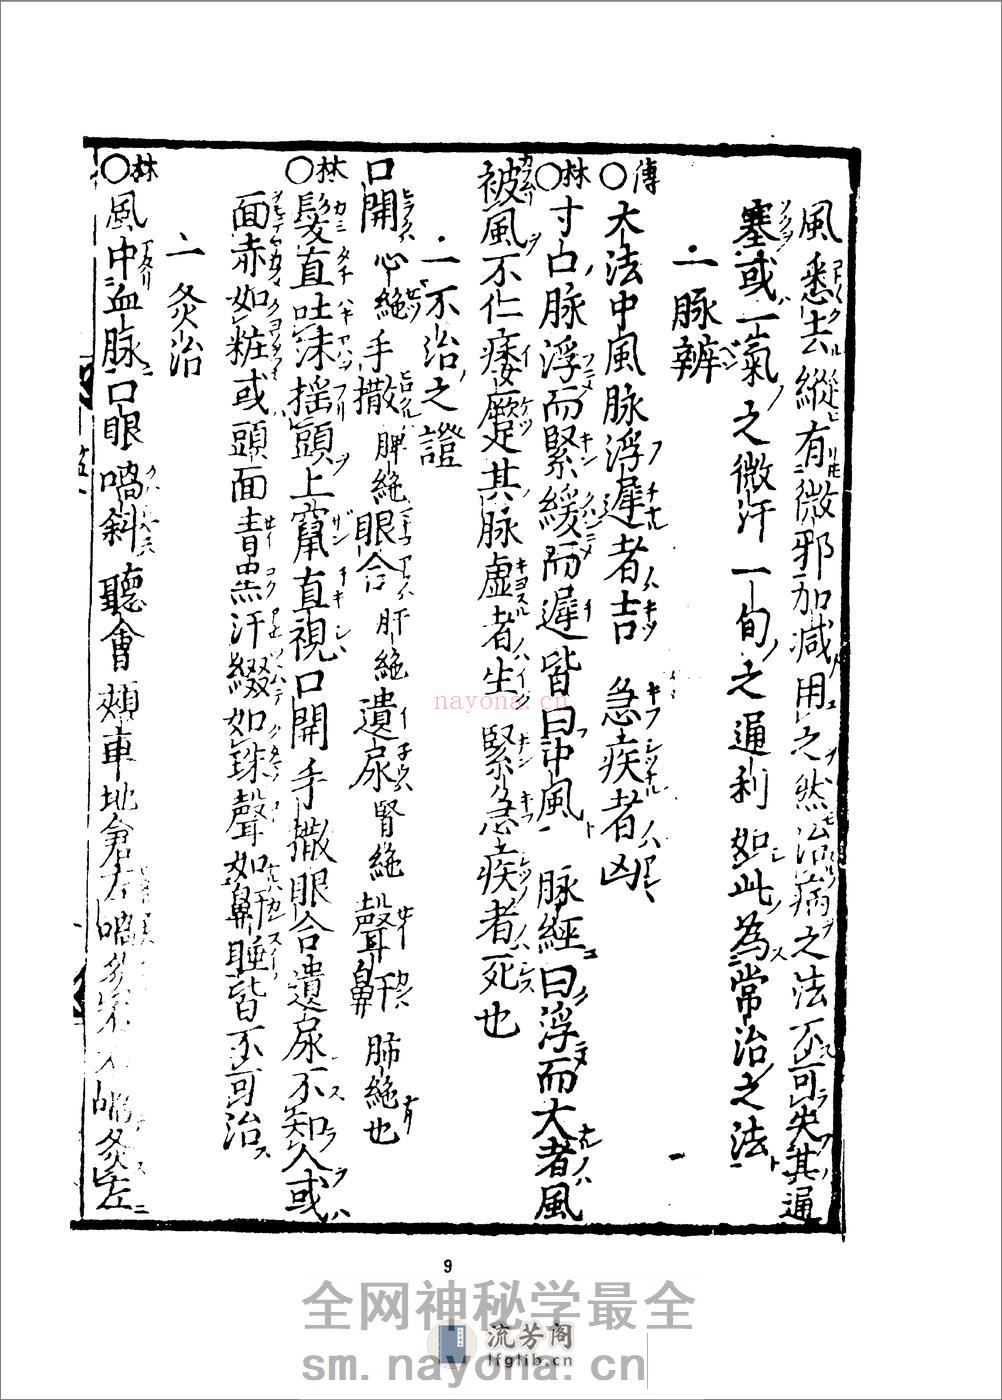 風悉去縱有微邪加減用之然治病之法不可失其通
塞或一氣之微汗一旬之通利如此為常治之法
一脉辨
傳○大法中風脉浮遲者吉急疾者凶
林○寸口脉浮而緊緩而遲皆曰中風脉經曰浮而大者風
被風不仁痿蹷其脉虛者生緊急疾者死也
一不治之證
口開心絶手撒脾絶眼合肝絶遺尿腎絶聲鼾肺絶也
林○髮直吐沫搖頭上竄直視口開手撒眼合遺尿不知人或
面赤如粧或頭面青黑汗綴如珠聲如鼾睡皆不可治
一灸治
林○風中血脉口眼喎斜聽會頰車地倉左喎灸右右喎灸左
9
nayona.cn
全网神秘学最全
流芳阁
lfglib.cn
sm.nayona.cn